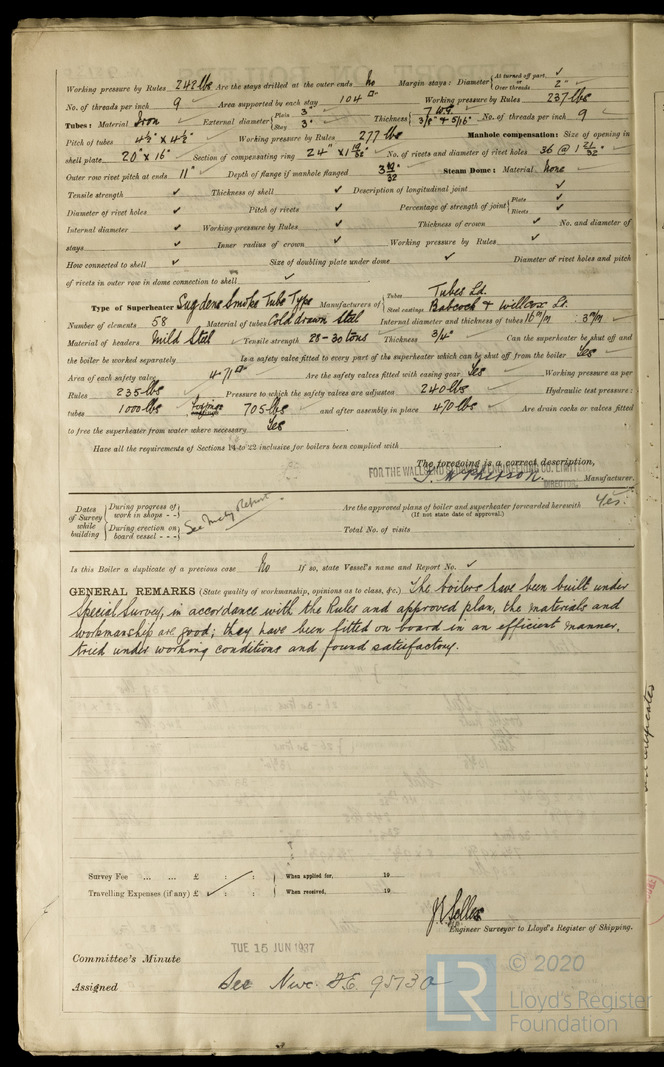 Working pressure by Rules 242 lbs Are the stays drilled at the outer ends No Margin stays: Diameter { At turned off part, ✓ or Over threads 2" ✓
No. of threads per inch 9 ✓ Area supported by each stay 104 □" Working pressure by Rules 237 lbs
Tubes: Material Iron ✓ External diameter { Plain 3" Stay 3" ✓ Thickness { 7 W.G. 3/8" & 5/16" ✓ No. of threads per inch 9 ✓
Pitch of tubes 4½" x 4½" ✓ Working pressure by Rules 277 lbs Manhole compensation: Size of opening in
shell plate 20" x 16" ✓ Section of compensating ring 24" x 1 ✓ No. of rivets and diameter of rivet holes 36 @ 1 21/32" ✓
Outer row rivet pitch at ends 11" ✓ Depth of flange if manhole flanged 3 Steam Dome: Material None ✓
Tensile strength ✓ Thickness of shell ✓ Description of longitudinal joint ✓
Diameter of rivet holes ✓ Pitch of rivets ✓ Percentage of strength of joint { Plate ✓ Rivets ✓
Internal diameter ✓ Working pressure by Rules ✓ Thickness of crown ✓ No. and diameter of
stays ✓ Inner radius of crown ✓ Working pressure by Rules ✓
How connected to shell ✓ Size of doubling plate under dome ✓ Diameter of rivet holes and pitch
of rivets in outer row in dome connection to shell ✓
Type of Superheater Sugdens Smoke Tube Type Manufacturers of { Tubes Tubes Ld. Steel castings Babcock & Willcox Ld.
Number of elements 58 Material of tubes Cold drawn Steel Internal diameter and thickness of tubes 16 m/m : 3 m/m ✓
Material of headers Mild Steel ✓ Tensile strength 28-30 tons ✓ Thickness 3/4" ✓ Can the superheater be shut off and
the boiler be worked separately Is a safety valve fitted to every part of the superheater which can be shut off from the boiler Yes ✓
Area of each safety valve 4.71 □" Are the safety valves fitted with easing gear Yes ✓ Working pressure as per
Rules 235 lbs Pressure to which the safety valves are adjusted 240 lbs ✓ Hydraulic test pressure:
tubes 1000 lbs 705 lbs ✓ and after assembly in place 470 lbs ✓ Are drain cocks or valves fitted
to free the superheater from water where necessary Yes
Have all the requirements of Sections 14 to 22 inclusive for boilers been complied with
The foregoing is a correct description,
Manufacturer.
DIRECTOR.
Dates of Survey while building { During progress of work in shops - - During erection on board vessel - - - } See Mchy Report. Are the approved plans of boiler and superheater forwarded herewith Yes.
(If not state date of approval.)
Total No. of visits
Is this Boiler a duplicate of a previous case No If so, state Vessel's name and Report No. ✓
GENERAL REMARKS (State quality of workmanship, opinions as to class, &c.) The boilers have been built under
Special Survey, in accordance with the Rules and approved plan, the materials and
workmanship are good; they have been fitted on board in an efficient manner,
tried under working conditions and found satisfactory.
Survey Fee ... ... £ : : When applied for, 19
Travelling Expenses (if any) £ : : When received, 19
Engineer Surveyor to Lloyd's Register of Shipping.
TUE 15 JUN 1937
Committee's Minute
Assigned See Nwc. F.E. 95730
© 2020
LR
Lloyd's Register
Foundation